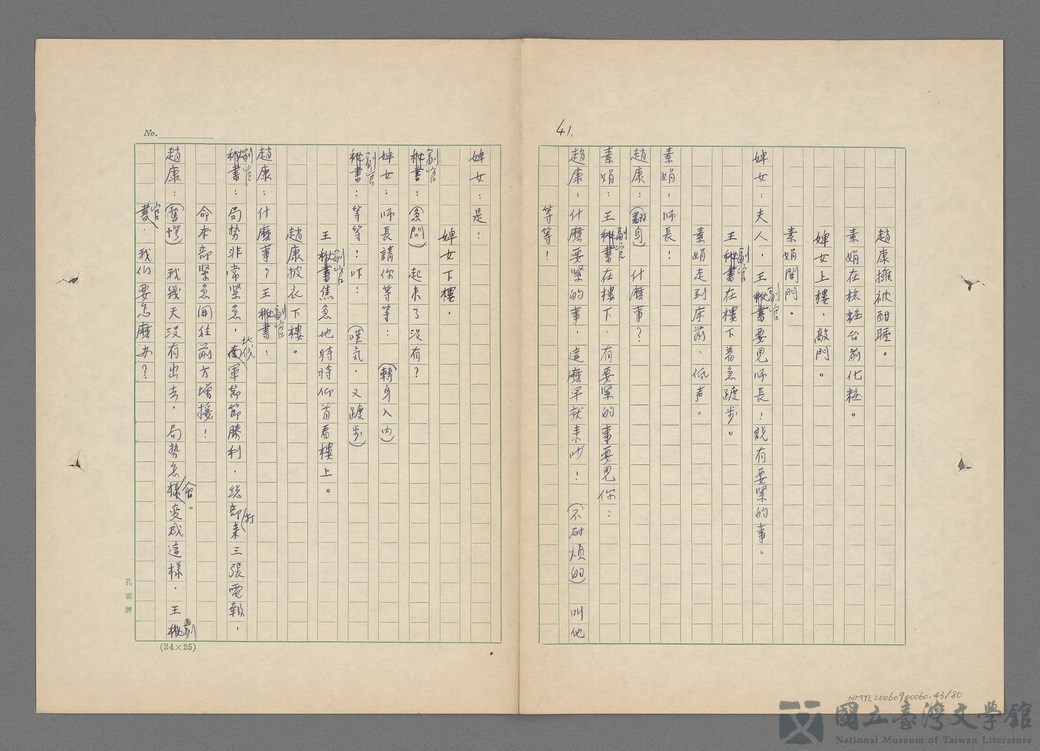 41.
趙康擁被酣睡。
素娟在梳粧台前化粧。
婢女上樓，敲門。
素娟開門。
婢女：夫人，王副官要見師長！說有要緊的事。
王副官在樓下着急踱步。
素娟走到床前，低声。
素娟：师長！
趙康：（翻身）什麼事？
素娟：王副官在樓下，有要緊的事要見你：
趙康：什麼要緊的事，這麼早就來吵！（不耐煩的）叫他
等等！
No.
婢女：是！
婢女下樓，
副官：（急問）起來了沒有？
婢女：师長請你等等：（轉身入內）
副官：等等！咋！（嘆气，又踱步）
王副官焦急地時時仰首看樓上。
趙康披衣下樓。
趙康：什麼事？王副官：
副官：局勢非常緊急，北伐軍節節勝利，総部打來三張電報，
命本部緊急開往前方增援！
趙康：（驚愕）我幾天沒有出去，局勢怎會變成這樣，王副
官，我们要怎麼办？
孔雀牌
(24×25)
NMTL20060900060-43/80
國立臺灣文學館
National Museum of Taiwan Literature